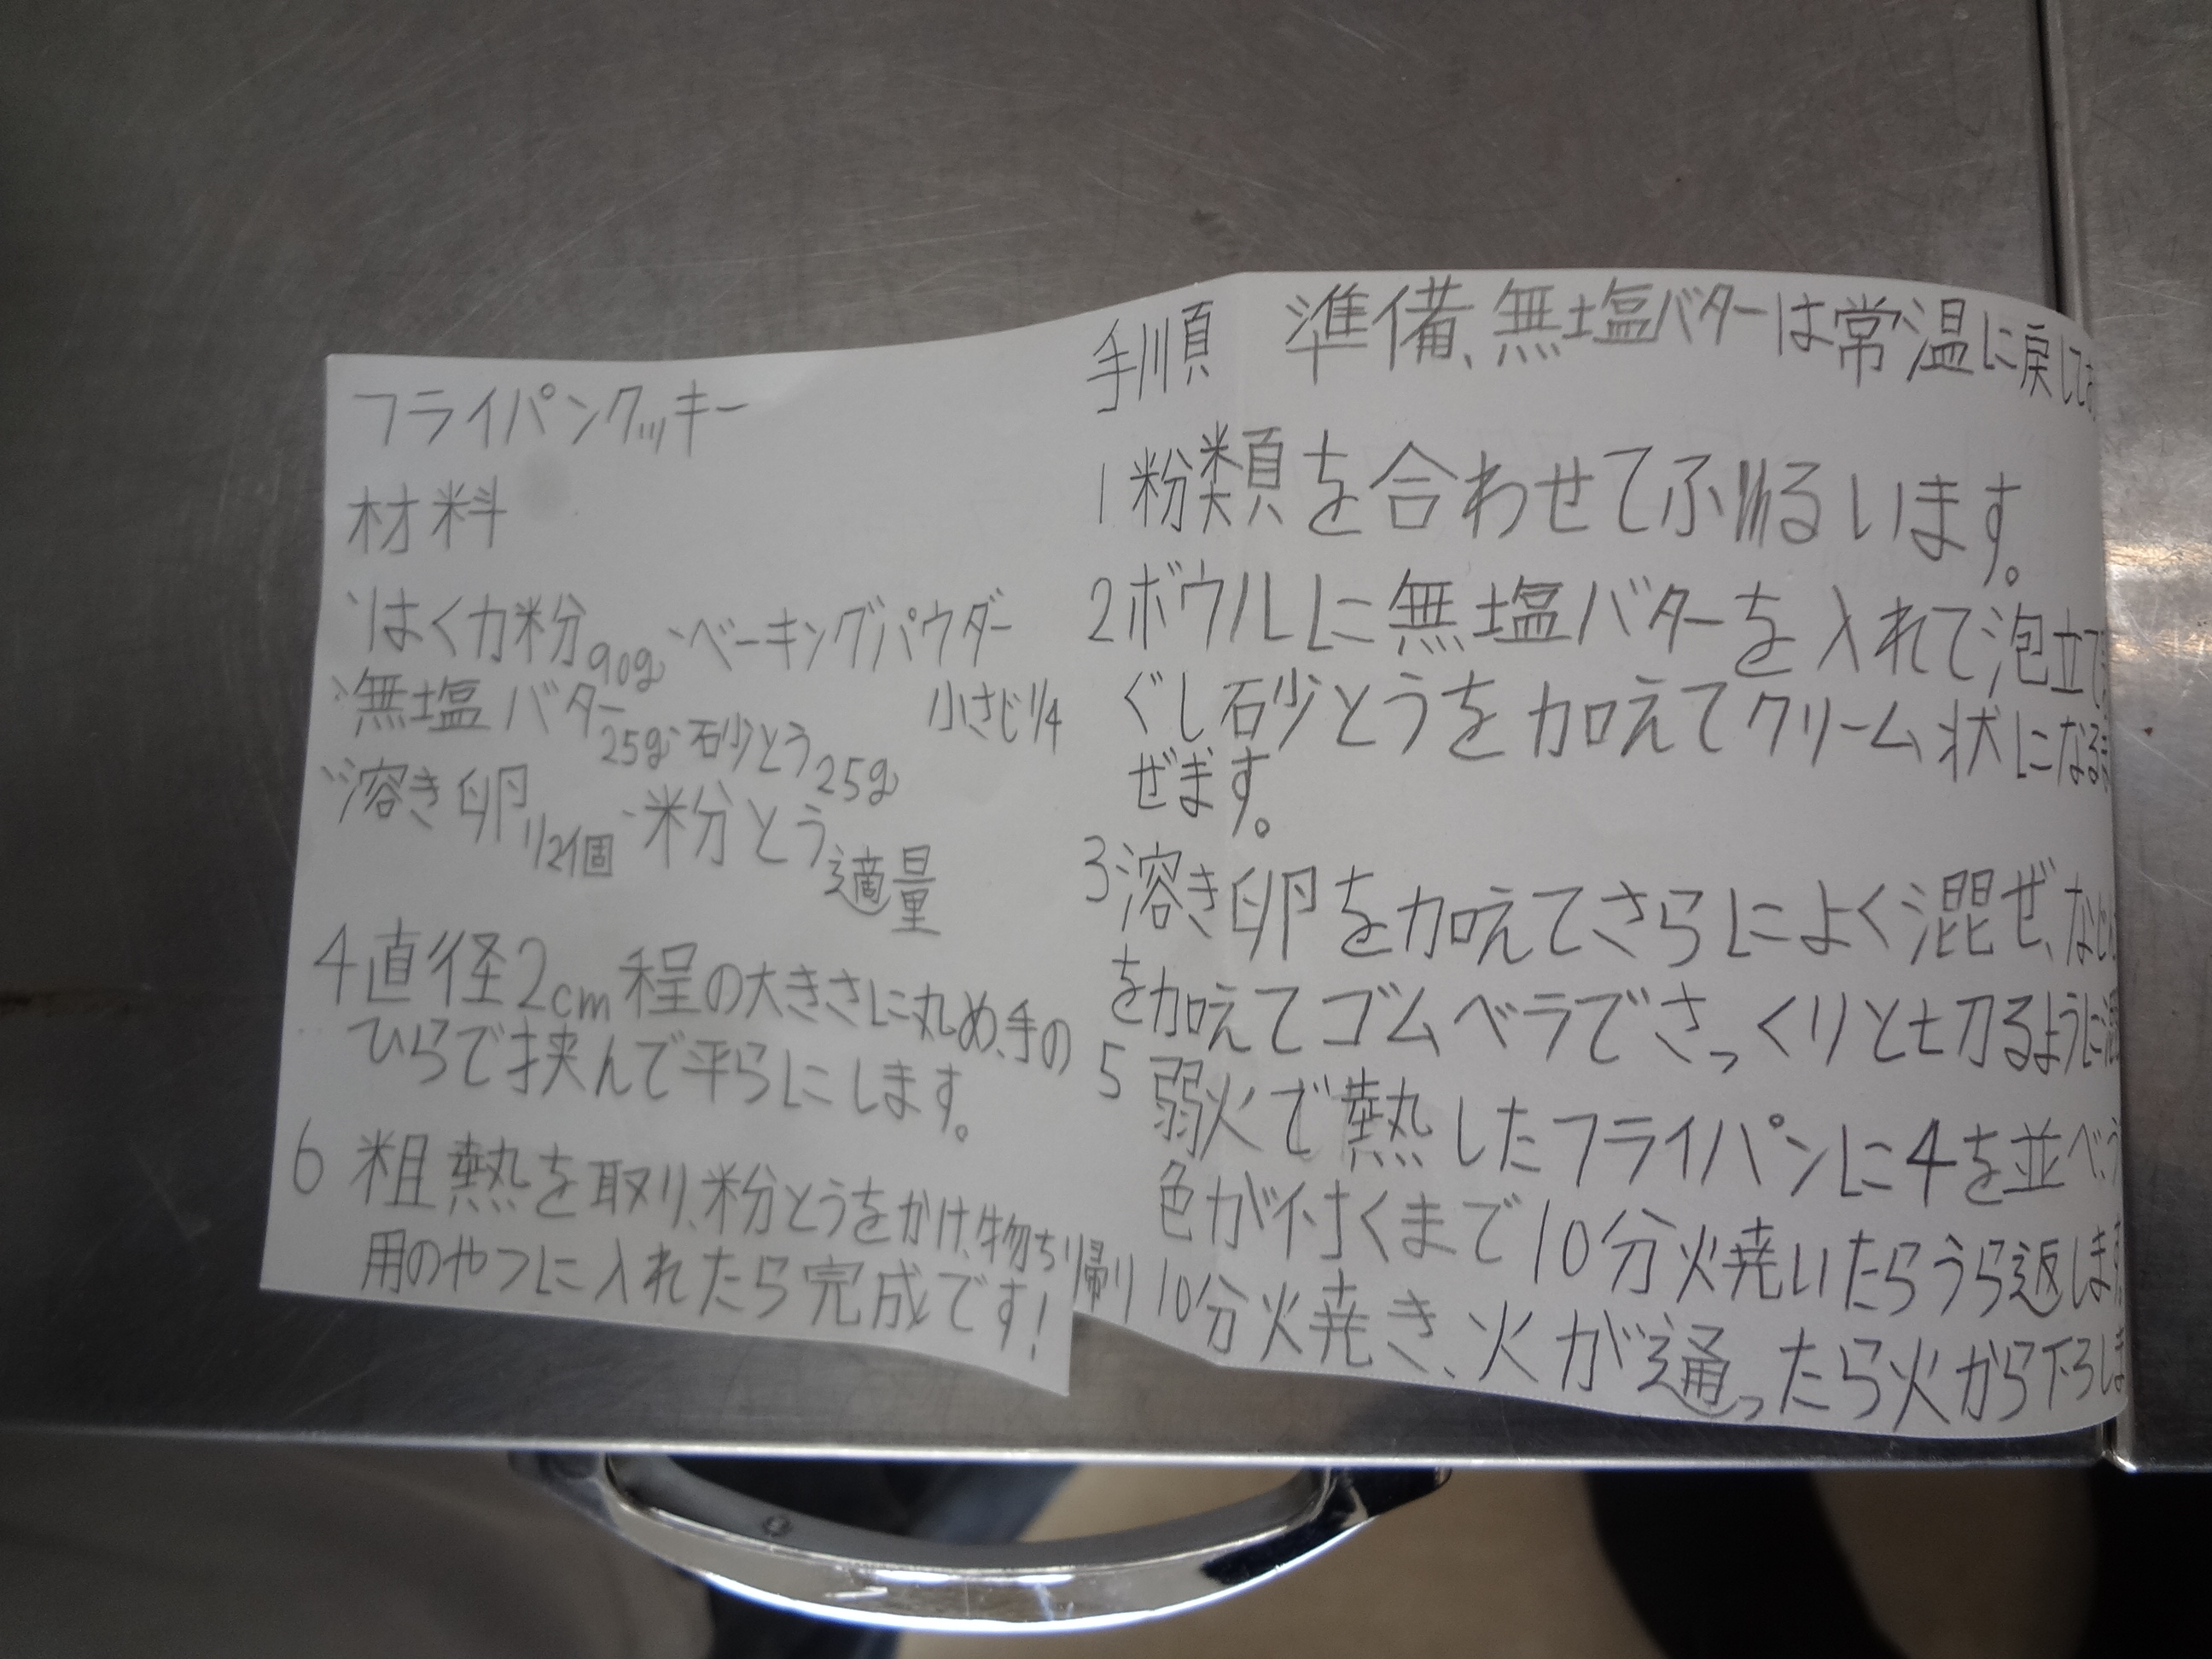 フライパンクッキー
材料
・はくカ粉90g ・ベーキングパウダー
小さじ1/4
・無塩バター25g ・砂とう25g
・溶き卵1/2個 ・粉とう適量
手順 準備、無塩バターは常温に戻して
1 粉類を合わせてふるいます。
2 ボウルに無塩バターを入れて泡立て
ぐし砂とうを加えてクリーム状になる
ぜます。
3 溶き卵を加えてさらによく混ぜ、
を加えてゴムベラでさっくりと切るように
4 直径2cm程の大きさに丸め、手の
ひらで挟んで平らにします。
5 弱火で熱したフライパンに4を並べ、
色が付くまで10分焼いたらうら返します
10分焼き、火が通ったら火から下ろしま
6 粗熱を取り、粉とうをかけ、物ち帰り
用のやつに入れたら完成です!